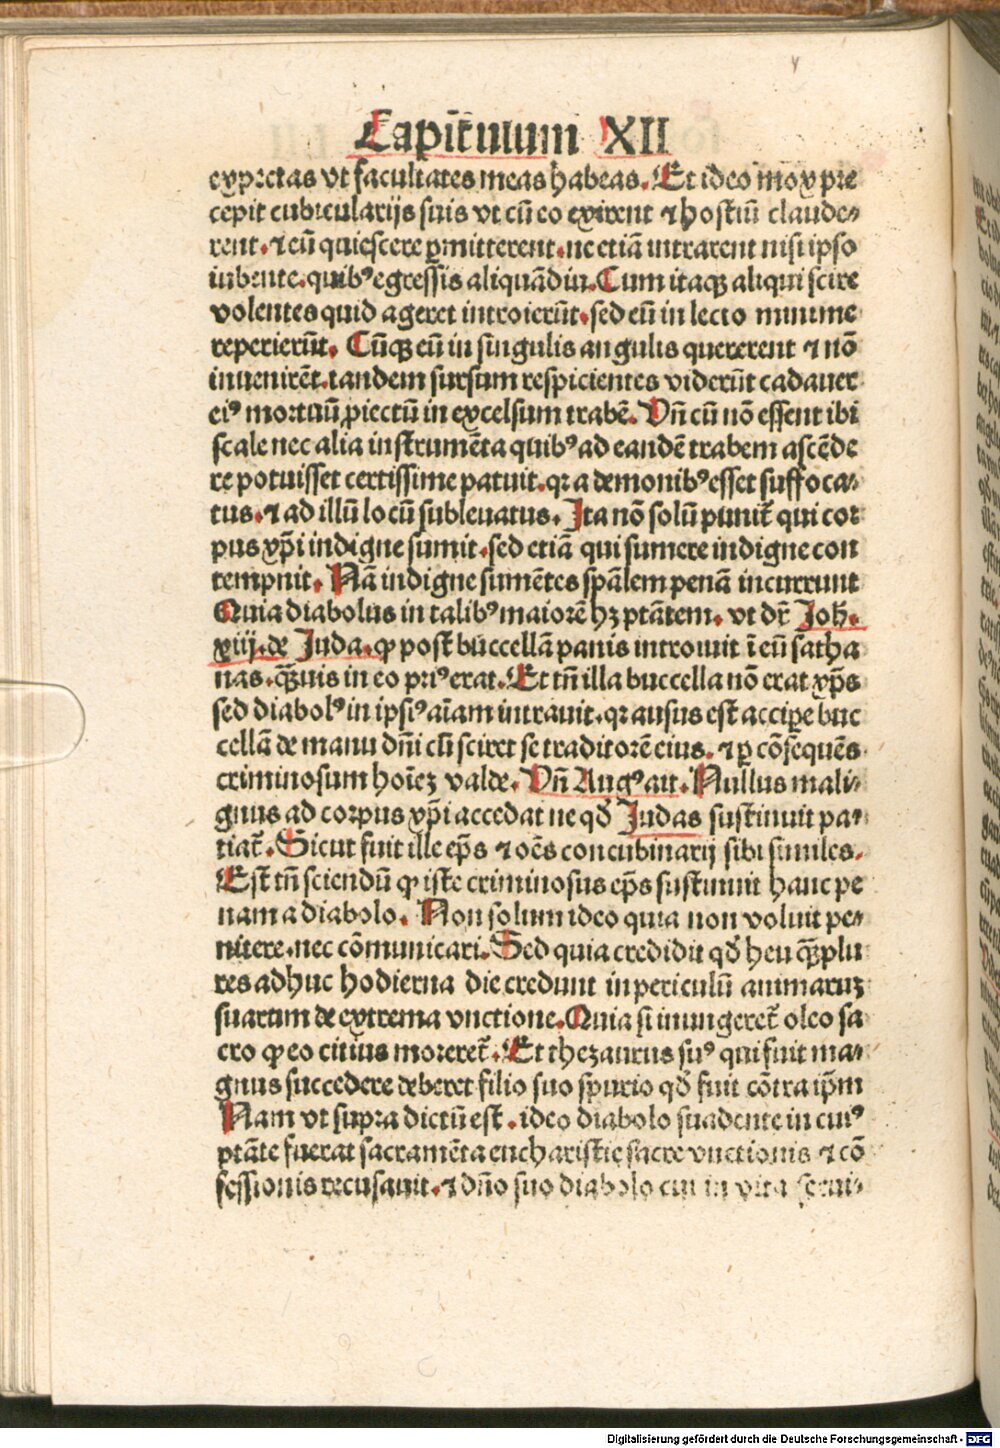 Capit̄ulum XII
expectas vt facultates meas habeas. Et ideo mox pre
cepit cubicularijs suis vt cū eo exirent ⁊ hostiū claude⸗
rent. ⁊ eū quiescere ꝑmitterent. ne etiā intrarent nisi ipso
iubente. quibꝰ egressis aliquādiu. Cum itaqꝫ aliqui scire
volentes quid ageret introierūt. sed eū in lecto minime
reperierūt. Cūqꝫ eū in singulis angulis quererent ⁊ nō
inuenirēt. tandem sursum respicientes viderūt cadauer
eiꝰ mortuū ꝓiectū in excelsum trabē. Vn̄ cū nō essent ibi
scale nec alia instrumēta quibꝰ ad eandē trabem ascēde
re potuisset certissime patuit. qꝛ a demonibꝰ esset suffoca⸗
tus. ⁊ ad illū locū subleuatus. Ita nō solū punit̄ qui cor
pus xp̄i indigne sumit. sed etiā qui sumere indigne con
tempnit. Nā indigne sumētes sp̄alem penā incurrunt
Quia diabolus in talibꝰ maiorē hꝫ ptātem. vt dr̄ Joh̄.
xiij. de Juda. ꝙ post buccellā panis introiuit ī eū satha
nas. qͣꝫuis in eo priꝰ erat. Et tn̄ illa buccella nō erat xp̄s
sed diabolꝰ in ipsiꝰ aīam intrauit. qꝛ ausus est accipe buc
cellā de manu dn̄i cū sciret se traditorē eius. ⁊ ꝑ cōsequēs
criminosum hoīeꝫ valde. Vn̄ Augꝰ ait. Nullus mali⸗
gnus ad corpus xp̄i accedat ne qd̄ Judas sustinuit pa⸗
tiat̄. Sicut fuit ille ep̄s ⁊ oēs concubinarij sibi similes.
Est tn̄ sciendū ꝙ iste criminosus ep̄s sustinuit hanc pe
nam a diabolo. Non solum ideo quia non voluit pe⸗
nitere. nec cōmunicari. Sed quia credidit qd̄ heu qͣꝫplu
res adhuc hodierna die credunt in periculū animaruꝫ
suarum de extrema vnctione. Quia si inungeret̄ oleo sa
cro ꝙ eo citius moreret̄. Et thezaurus suꝰ qui fuit ma⸗
gnus succedere deberet filio suo spurio qd̄ fuit cōtra ip̄m
Nam vt supra dictū est. ideo diabolo suadente in cuiꝰ
ptāte fuerat sacramēta eucharistie sacre vnctionis ⁊ cō
fessionis recusauit. ⁊ dn̄o suo diabolo cui in vita serui⸗
Digitalisierung gefördert durch die Deutsche Forschungsgemeinschaft - DFG